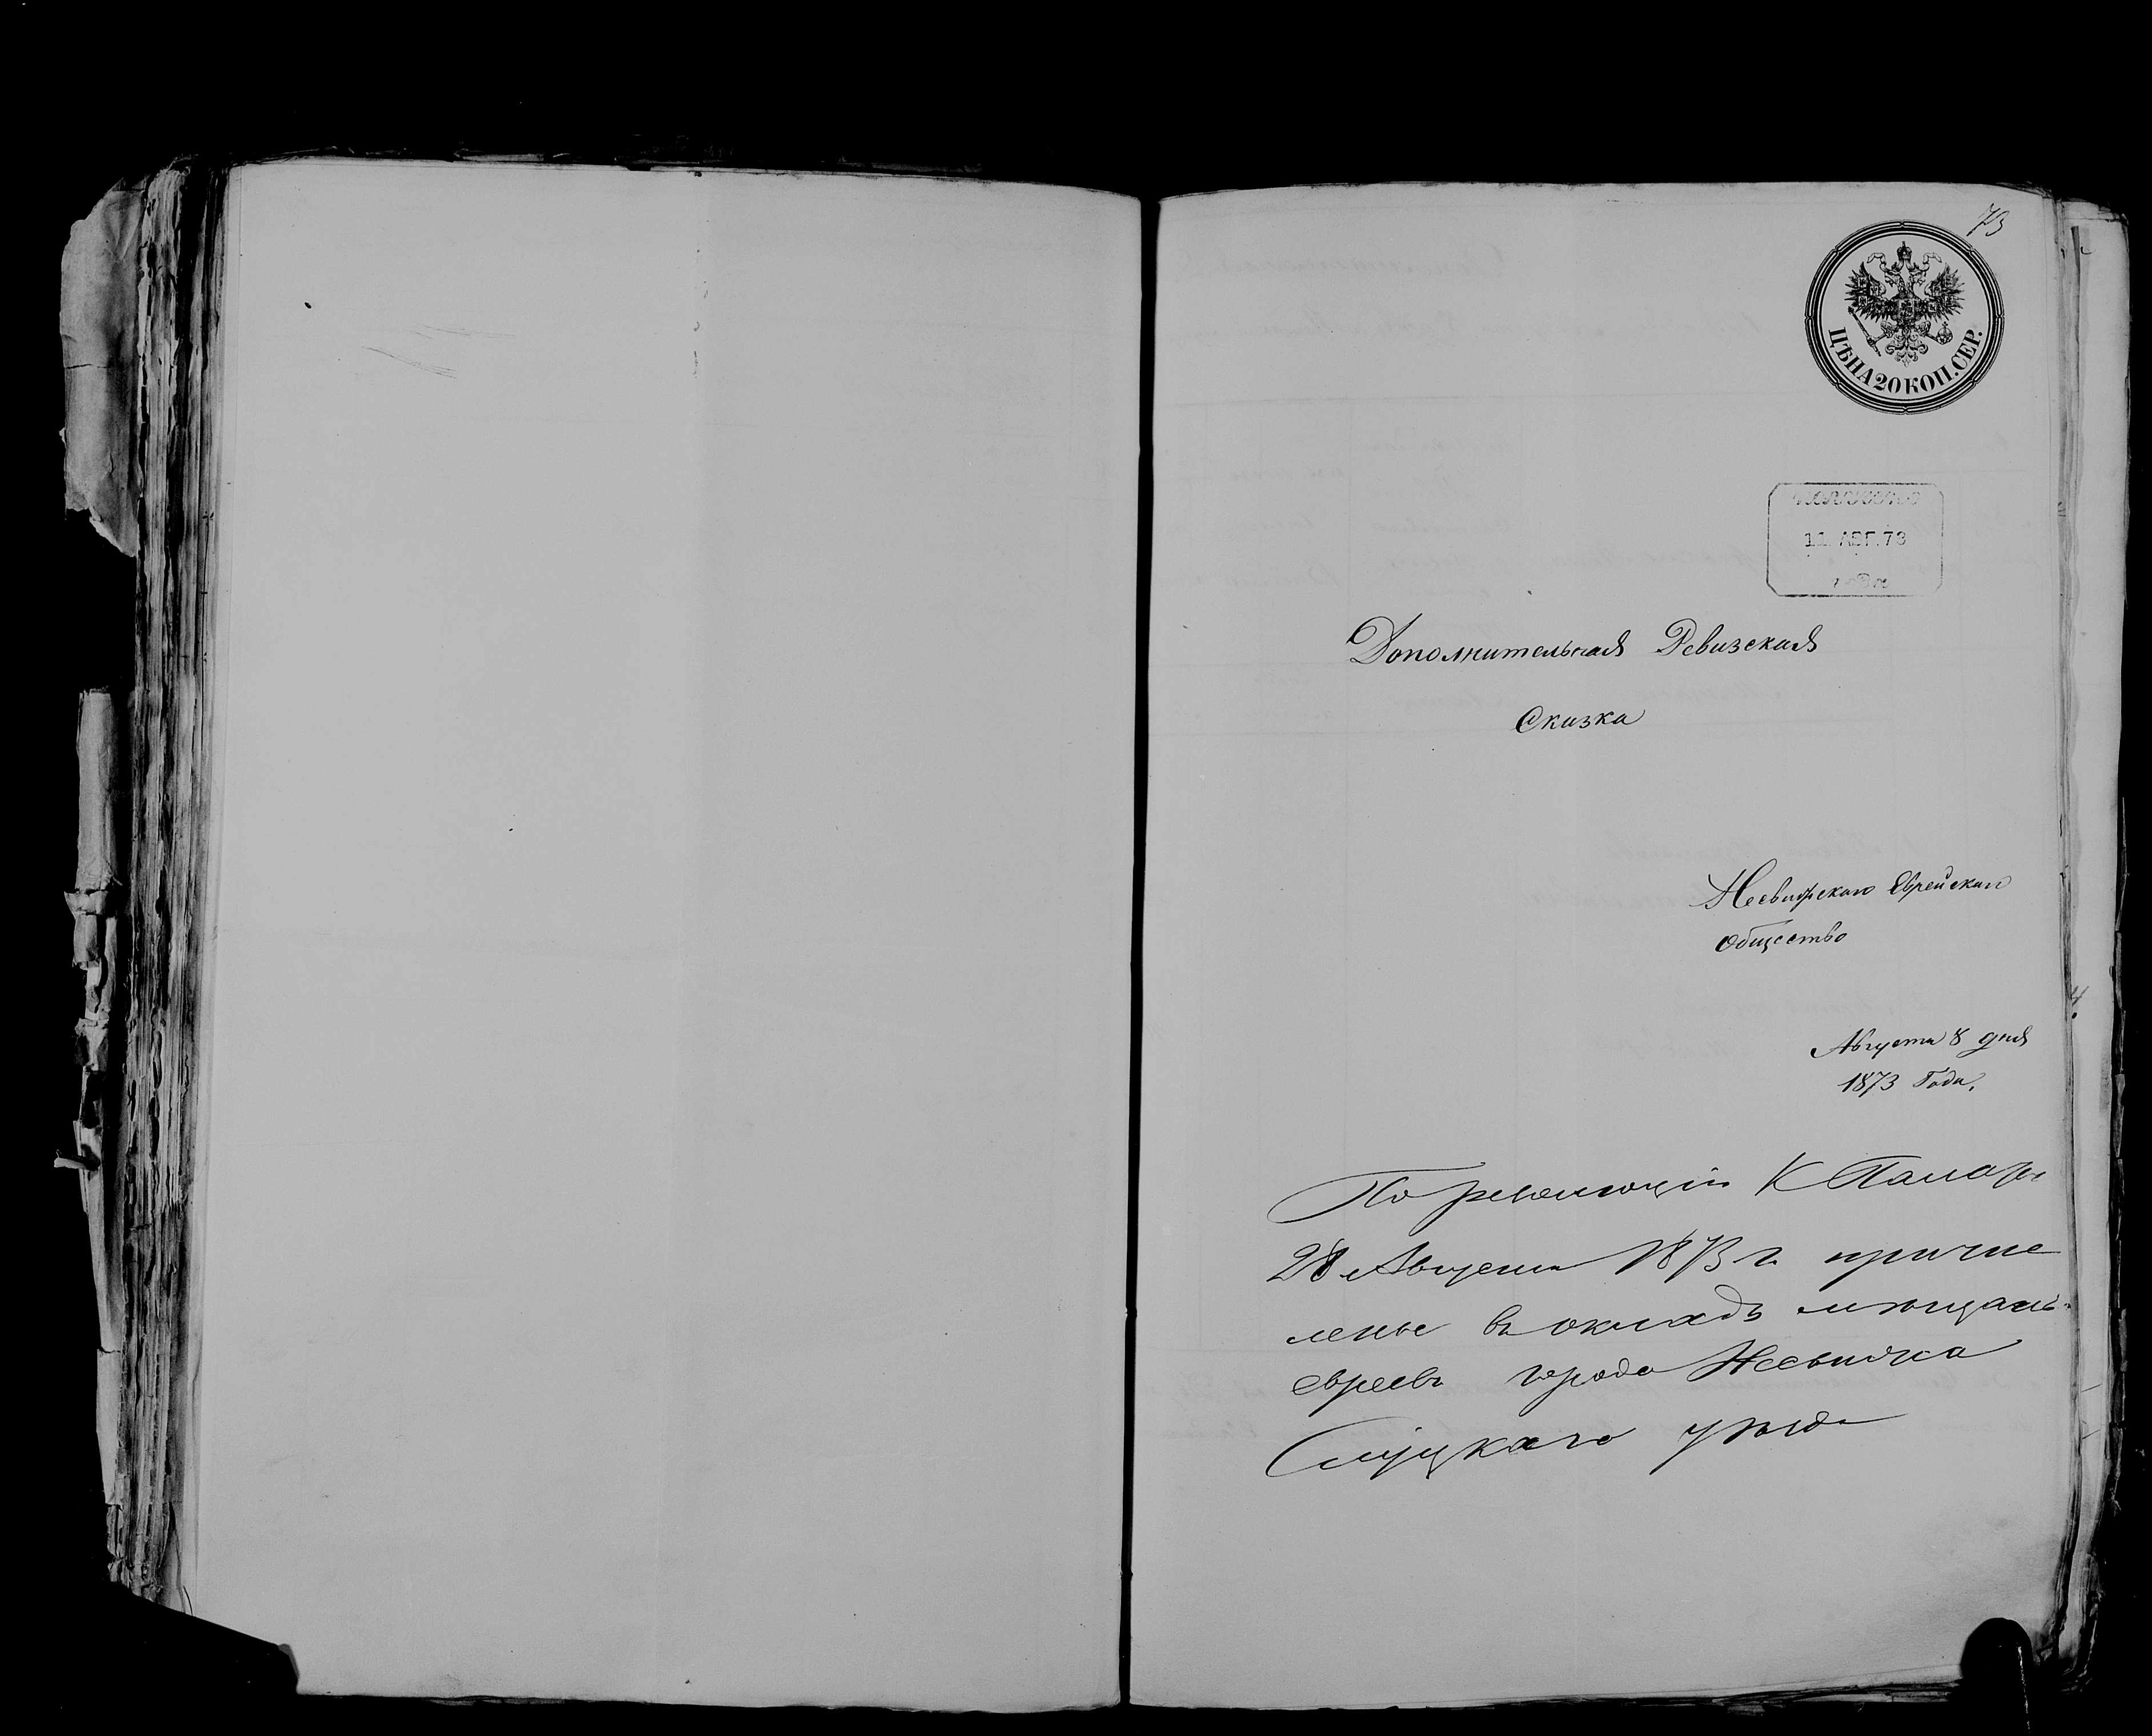 73
ЦѢНА 20 КОП. СЕР.
11 АВГ. 73
Дополнительная Ревизская
Сказка
Несвижскаго Еврейскаго
Общество
Августа 8 дня
1873 Года.
По резолюціи К Палаты
28 Августа 1873 г. причис
лены въ окладъ мѣщанъ
евреевъ города Несвижа
Слуцкаго уѣзда